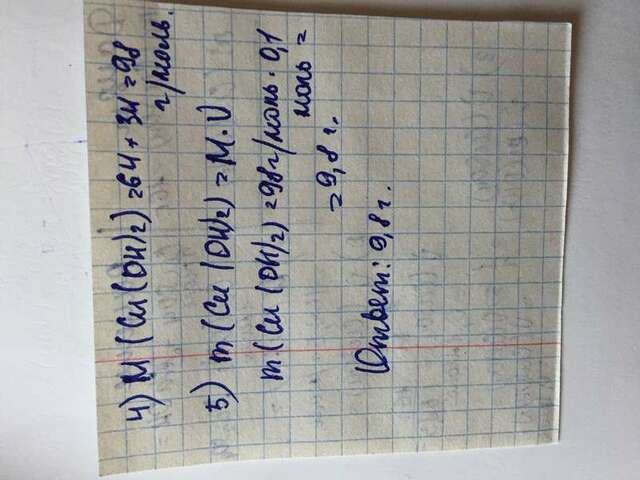 4) M (Cu(OH)2) = 64 + 34 = 98
г/моль.
5) m (Cu (OH)2) = M · ν
m (Cu (OH)2) = 98 г/моль · 0,1
моль =
= 9,8 г.
Ответ: 9,8 г.